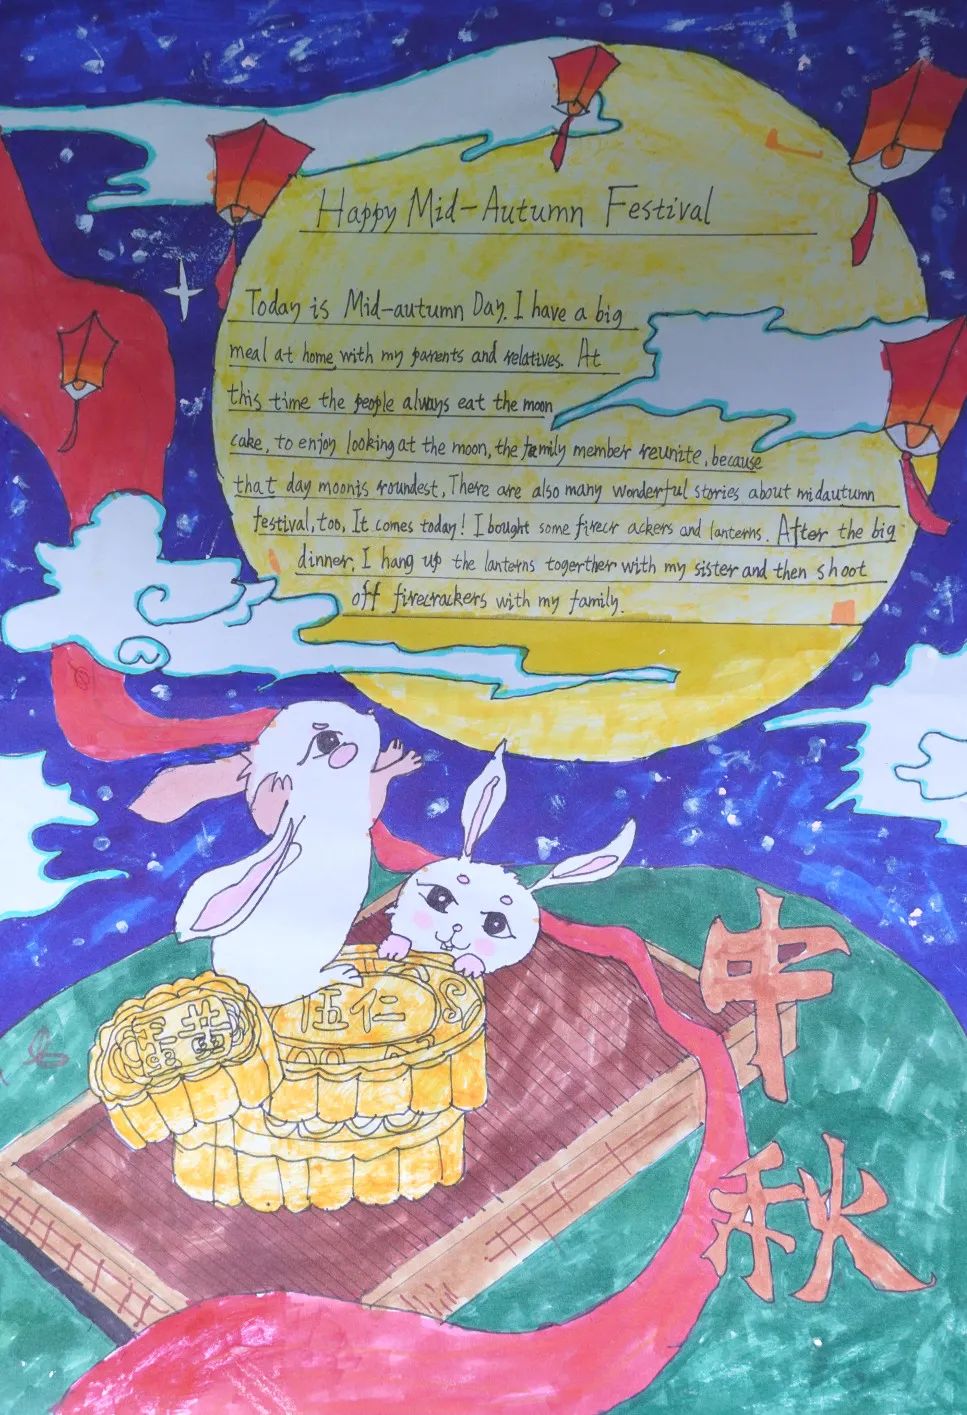 Happy Mid-Autumn Festival
Today is Mid-autumn Day. I have a big
meal at home with my parents and relatives. At
this time the people always eat the moon
cake, to enjoy looking at the moon, the family member reunite, because
that day moonis roundest, There are also many wonderful stories about midautumn
festival, too, It comes today! I bought some firecr ackers and lanterns. After the big
dinner, I hang up the lanterns togerther with my sister and then shoot
off firecrackers with my family.
伍仁
中
秋